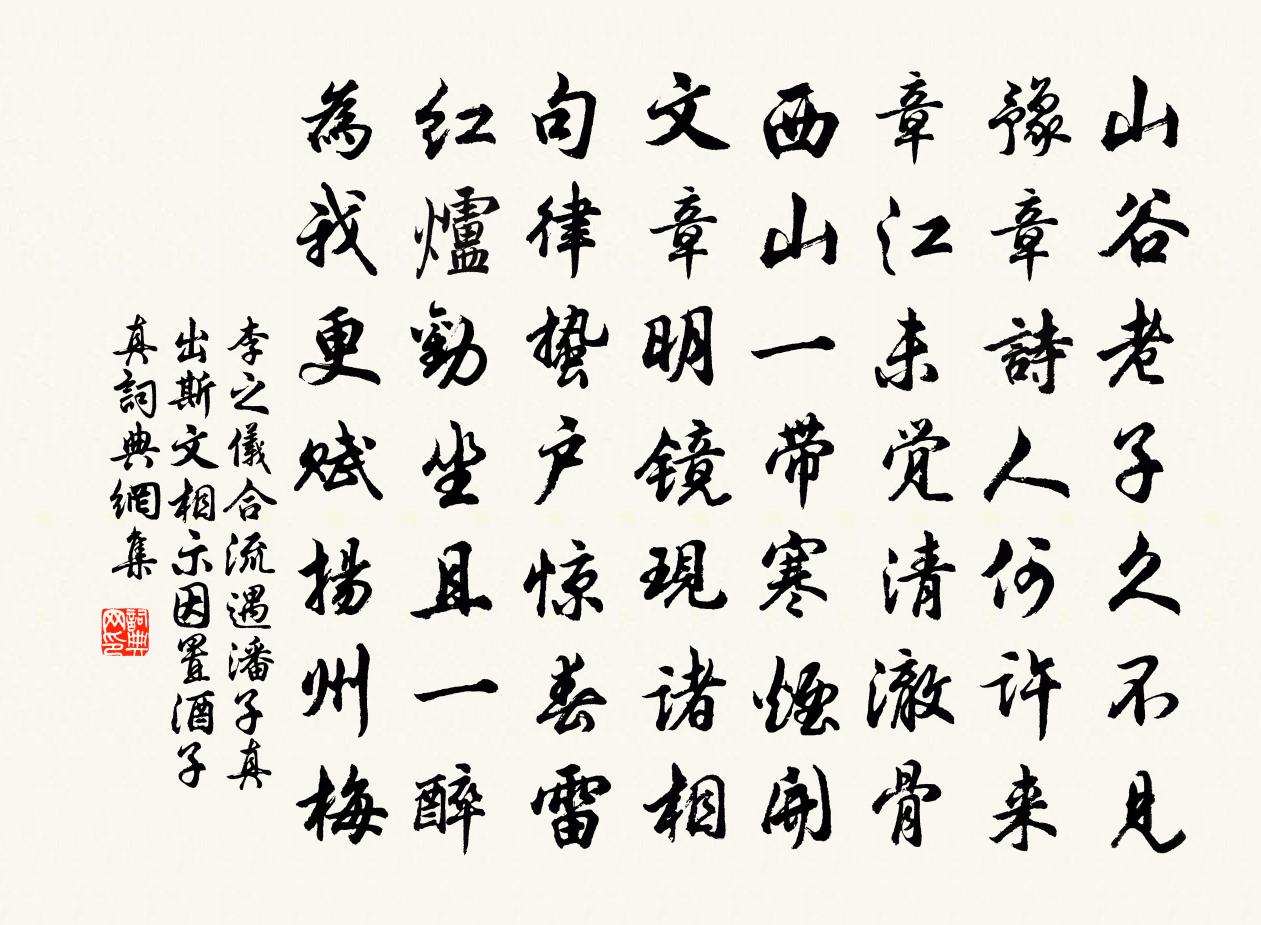 山谷老子久不見
豫章詩人何許来
章江未觉清澈骨
西山一帶寒煙開
文章明镜現諸相
句律蟄户惊春雷
红爐勸坐且一醉
為我更赋揚州梅
李之儀合流遇潘子真
出斯文相示因置酒子
真詞典網集
詞典网印